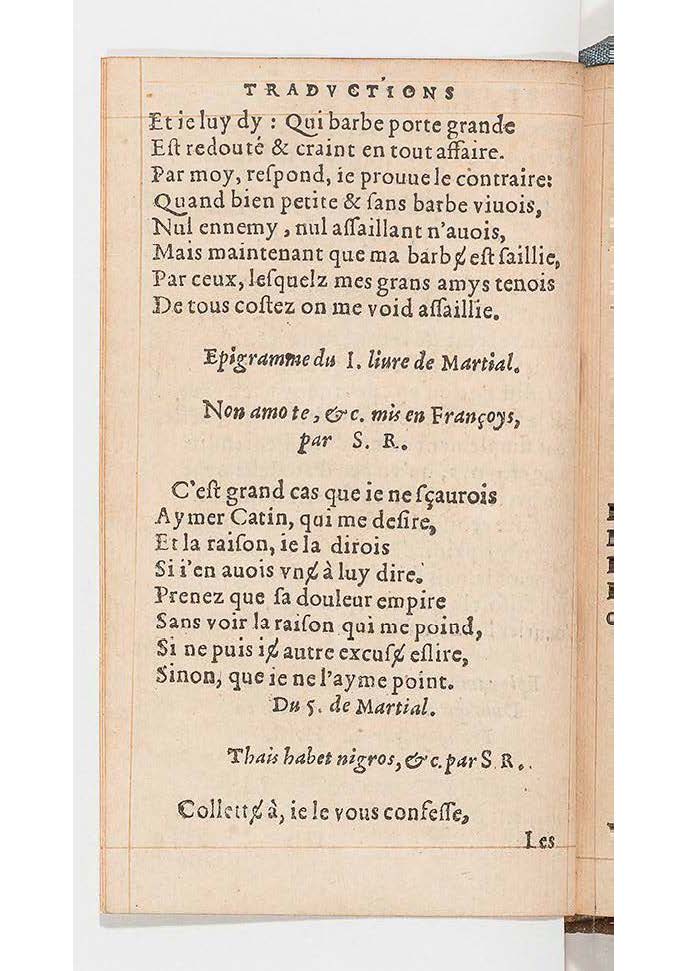 TRADVCTIONS
Et ie luy dy : Qui barbe porte grande
Est redouté & craint en tout affaire.
Par moy, reſpond, ie prouue le contraire:
Quand bien petite & ſans barbe viuois,
Nul ennemy, nul aſſaillant n'auois,
Mais maintenant que ma barbɇ eſt ſaillie,
Par ceux, leſquelz mes grans amys tenois
De tous coſtez on me void aſſaillie.
Epigramme du I. liure de Martial.
Non amo te, &c. mis en Françoys,
par S. R.
C'eſt grand cas que ie ne ſçaurois
Aymer Catin, qui me deſire,
Et la raiſon, ie la dirois
Si i'en auois vnɇ à luy dire.
Prenez que ſa douleur empire
Sans voir la raiſon qui me poind,
Si ne puis iɇ autre excuſɇ eſlire,
Sinon, que ie ne l'ayme point.
Du 5. de Martial.
Thais habet nigros, &c. par S R.
Collettɇ à, ie le vous confeſſe,
Les